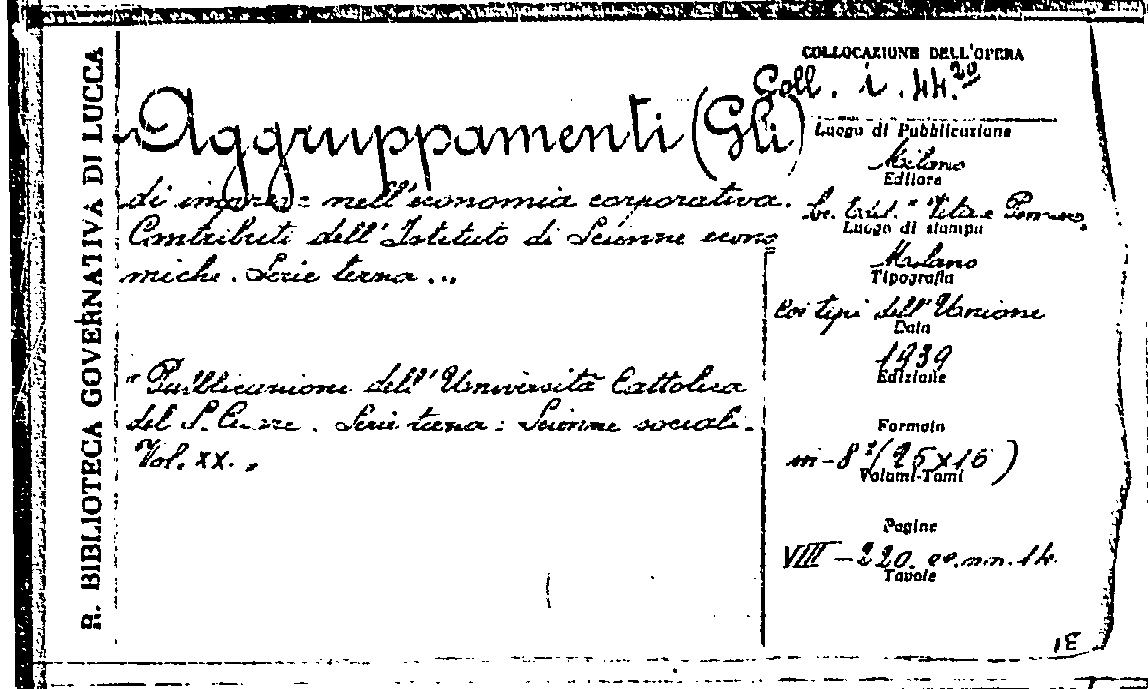 R. BIBLIOTECA GOVERNATIVA DI LUCCA
Aggruppamenti (Gli)
di imprese nell'economia corporativa.
Contributi dell'Istituto di Scienze econo
miche. Serie terza...
"Pubblicazione dell'Università Cattolica
del S. Cuore. Serie terza: Scienze sociali.
Vol. XX.„
COLLOCAZIONE DELL'OPERA
Coll. i. 44.20
Luogo di Pubblicazione
Milano
Editore
Soc. Edit. "Vita e Pensiero„
Luogo di stampa
Milano
Tipografia
Coi tipi dell'Unione
Data
1939
Edizione
Formato
in-8°(25x16)
Volumi-Tomi
Pagine
VIII-220. cc.nn.14.
Tavole
1E